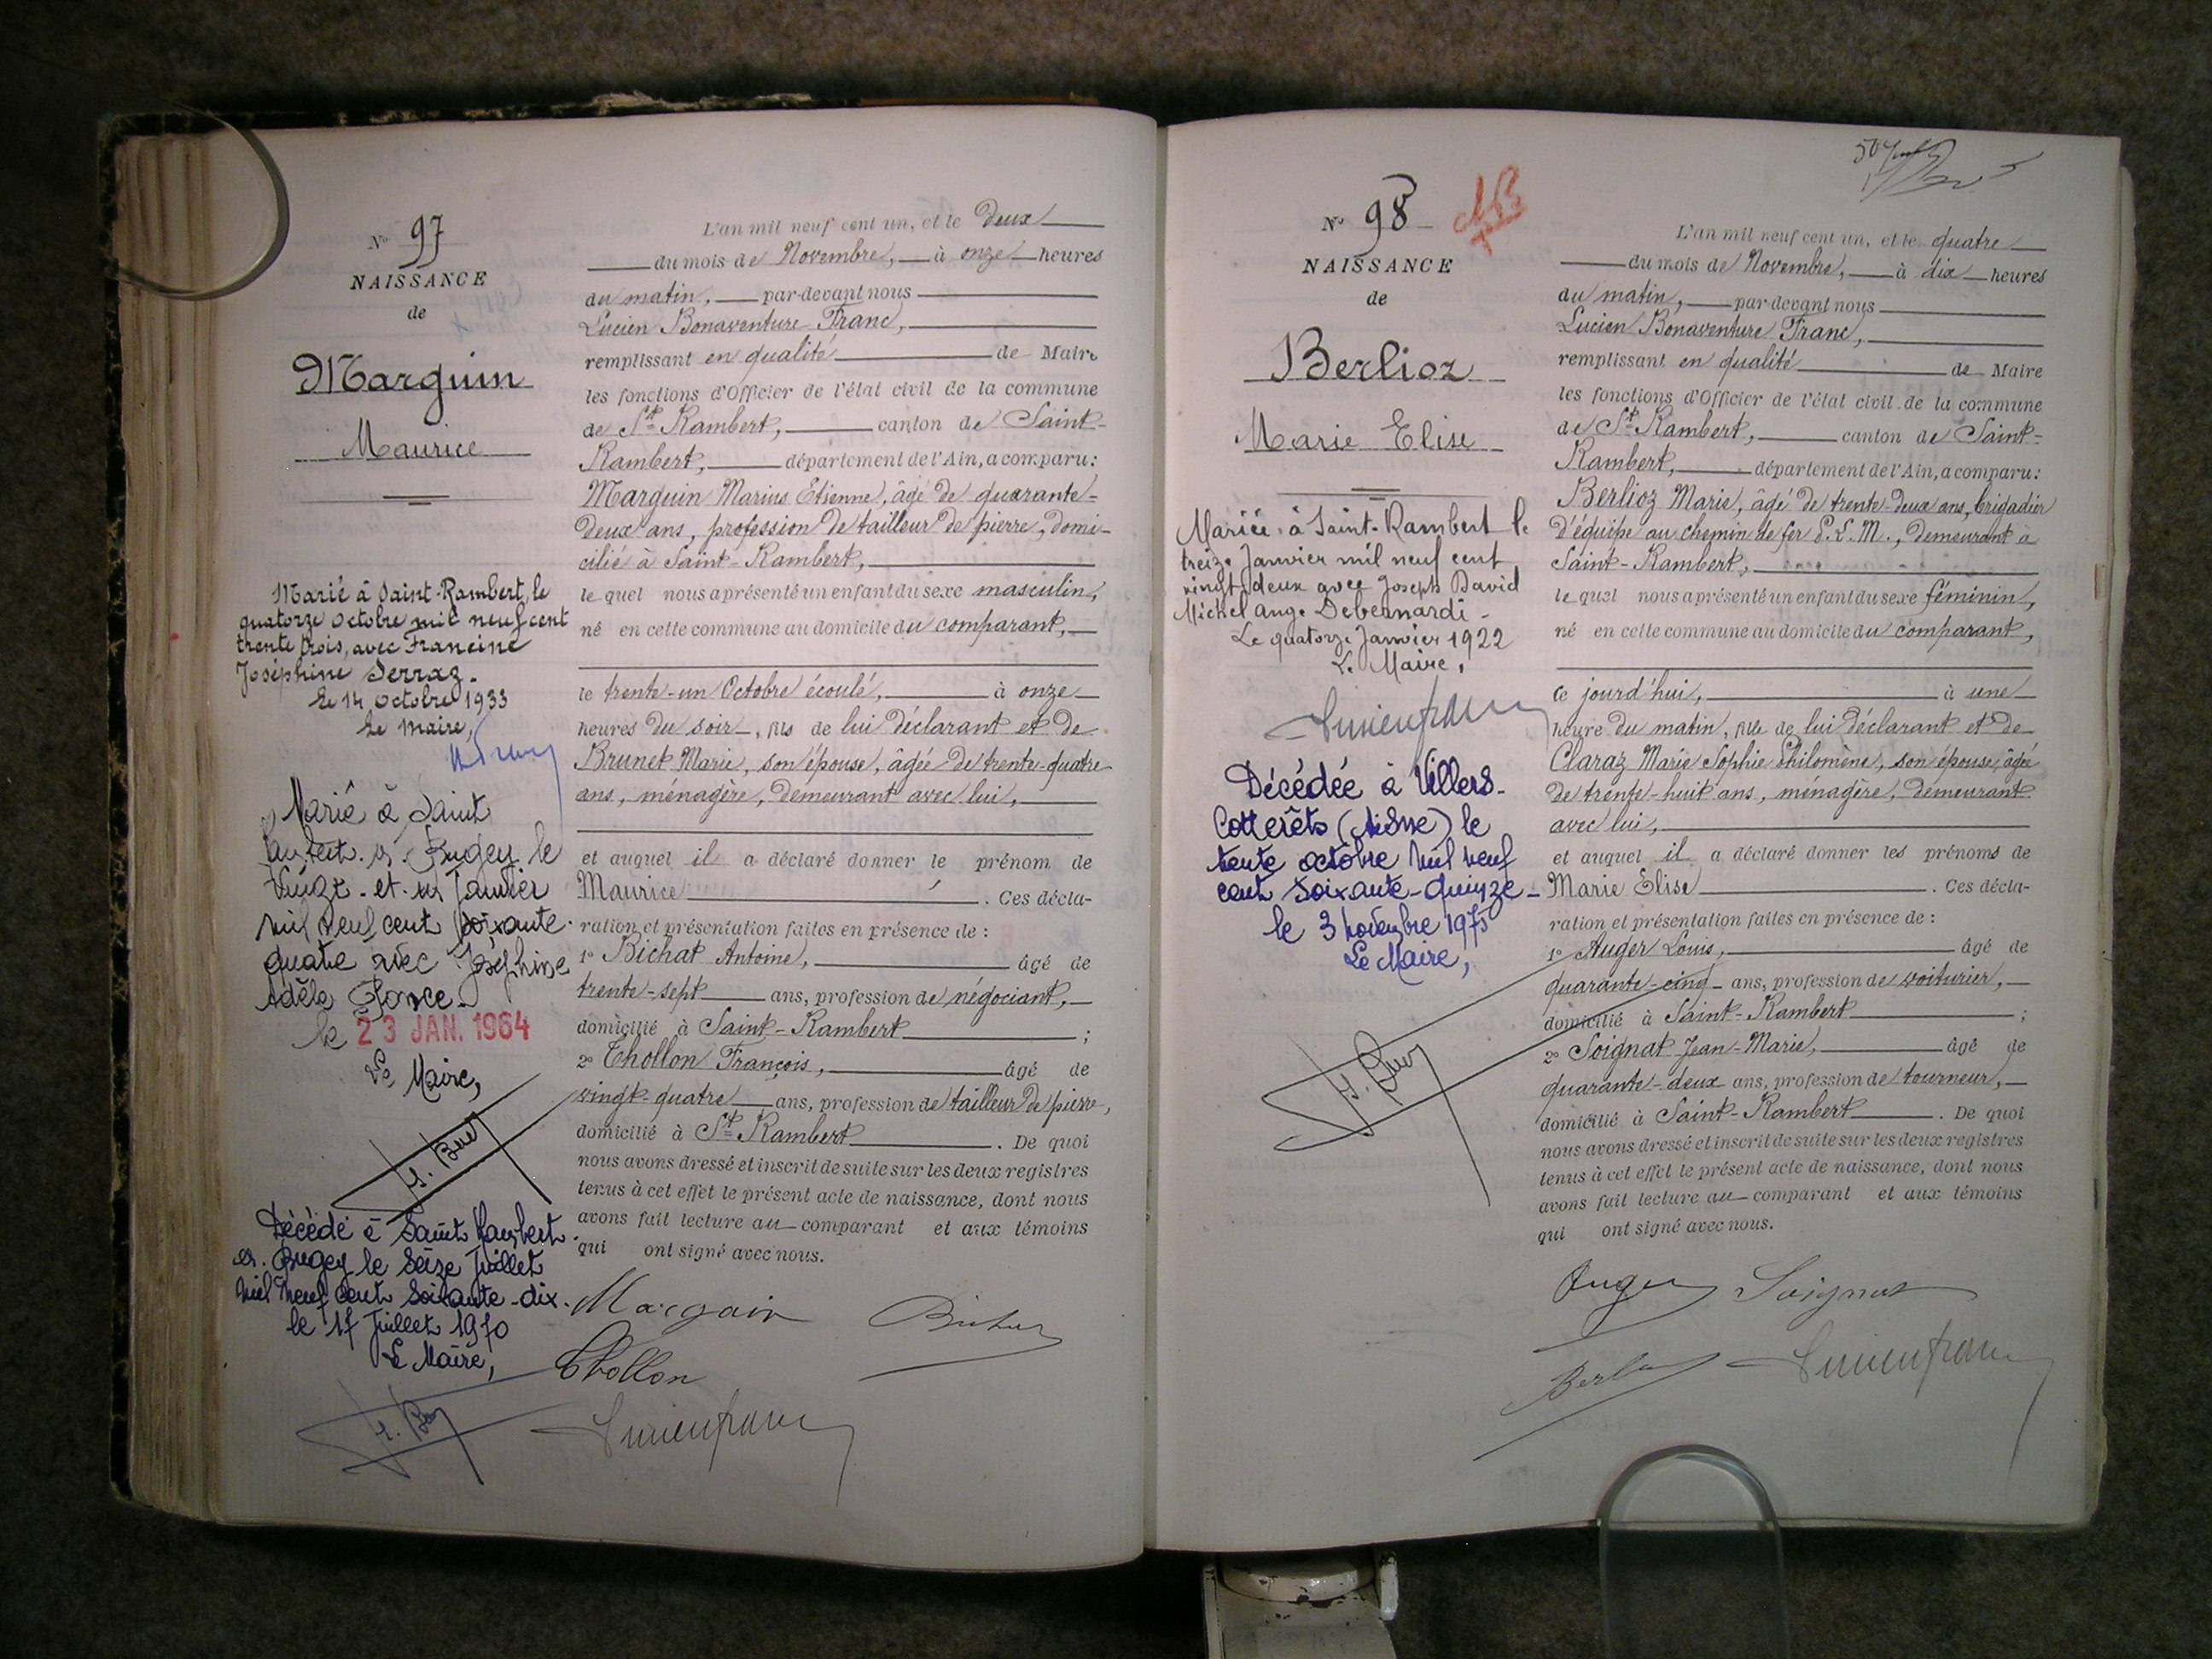 N° 97
NAISSANCE
de
Marguin
Maurice
Marié à Saint-Rambert, le
quatorze Octobre mil neuf cent
trente trois, avec Francine
Joséphine Serraz.
Le 14 Octobre 1933
Le Maire,
Marié à Saint
Rambert-en-Bugey le
Vingt-et-un Janvier
mil neuf cent soixante-
quatre avec Joséphine
Adèle
le 23 JAN. 1964
Le Maire,
Décédé à Saint Rambert-
en-Bugey le Seize Juillet
mil neuf cent Soixante-dix.
le 17 Juillet 1970
Le Maire,
L'an mil neuf cent un, et le Deux
du mois de Novembre, à onze heures
du matin, par-devant nous
Lucien Bonaventure Franc,
remplissant en qualité de Maire
les fonctions d'Officier de l'état civil de la commune
de St Rambert, canton de Saint-
Rambert, département de l'Ain, a comparu:
Marguin Marius Etienne, âgé de quarante-
deux ans, profession de tailleur de pierre, domi-
cilié à Saint-Rambert,
le quel nous a présenté un enfant du sexe masculin,
né en cette commune au domicile du comparant,
le trente-un Octobre écoulé, à onze
heures du soir, fils de lui déclarant et de
Brunet Marie, son épouse, âgée de trente-quatre
ans, ménagère, demeurant avec lui,
et auquel il a déclaré donner le prénom de
Maurice. Ces décla-
ration et présentation faites en présence de :
1° Bichat Antoine, âgé de
trente-sept ans, profession de négociant,
domicilié à Saint-Rambert ;
2° Chollon François, âgé de
vingt-quatre ans, profession de tailleur de pierre,
domicilié à St Rambert. De quoi
nous avons dressé et inscrit de suite sur les deux registres
tenus à cet effet le présent acte de naissance, dont nous
avons fait lecture au comparant et aux témoins
qui ont signé avec nous.
Marguin Bichat
Chollon
Lucien franc
N° 98
NAISSANCE
de
Berlioz
Marie Elise
Mariée à Saint-Rambert le
treize Janvier mil neuf cent
vingt deux avec Joseph David
Michel Ange Debernardi -
Le quatorze Janvier 1922
Le Maire,
Lucien franc
Décédée à Villers-
Cotterêts (Aisne) le
trente octobre mil neuf
cent soixante-quinze
le 3 novembre 1975
Le Maire,
L'an mil neuf cent un, et le quatre
du mois de Novembre, à dix heures
du matin, par-devant nous
Lucien Bonaventure Franc,
remplissant en qualité de Maire
les fonctions d'Officier de l'état civil de la commune
de St Rambert, canton de Saint-
Rambert, département de l'Ain, a comparu:
Berlioz Marie, âgé de trente-deux ans, brigadier
d'équipe au chemin de fer P.L.M., demeurant à
Saint-Rambert,
le quel nous a présenté un enfant du sexe féminin,
né en cette commune au domicile du comparant,
ce jourd'hui, à une
heure du matin, fille de lui déclarant et de
Claraz Marie Sophie Philomène, son épouse, âgée
de trente-huit ans, ménagère, demeurant
avec lui,
et auquel il a déclaré donner les prénoms de
Marie Elise. Ces décla-
ration et présentation faites en présence de :
1° Auger Louis, âgé de
quarante-cinq ans, profession de voiturier,
domicilié à Saint-Rambert ;
2° Soignat Jean-Marie, âgé de
quarante-deux ans, profession de tourneur,
domicilié à Saint-Rambert. De quoi
nous avons dressé et inscrit de suite sur les deux registres
tenus à cet effet le présent acte de naissance, dont nous
avons fait lecture au comparant et aux témoins
qui ont signé avec nous.
Auger Soignat
Lucien franc